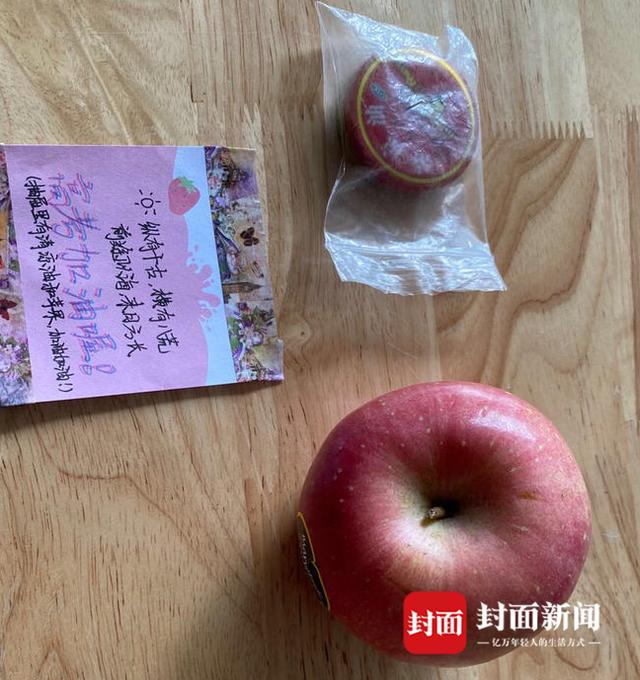 纵有千古，横有八荒
前途似海，来日方长
高考加油喔！
(抽屉里有清凉油和苹果，加油加油!)
封面
封面新闻
亿万年轻人的生活方式